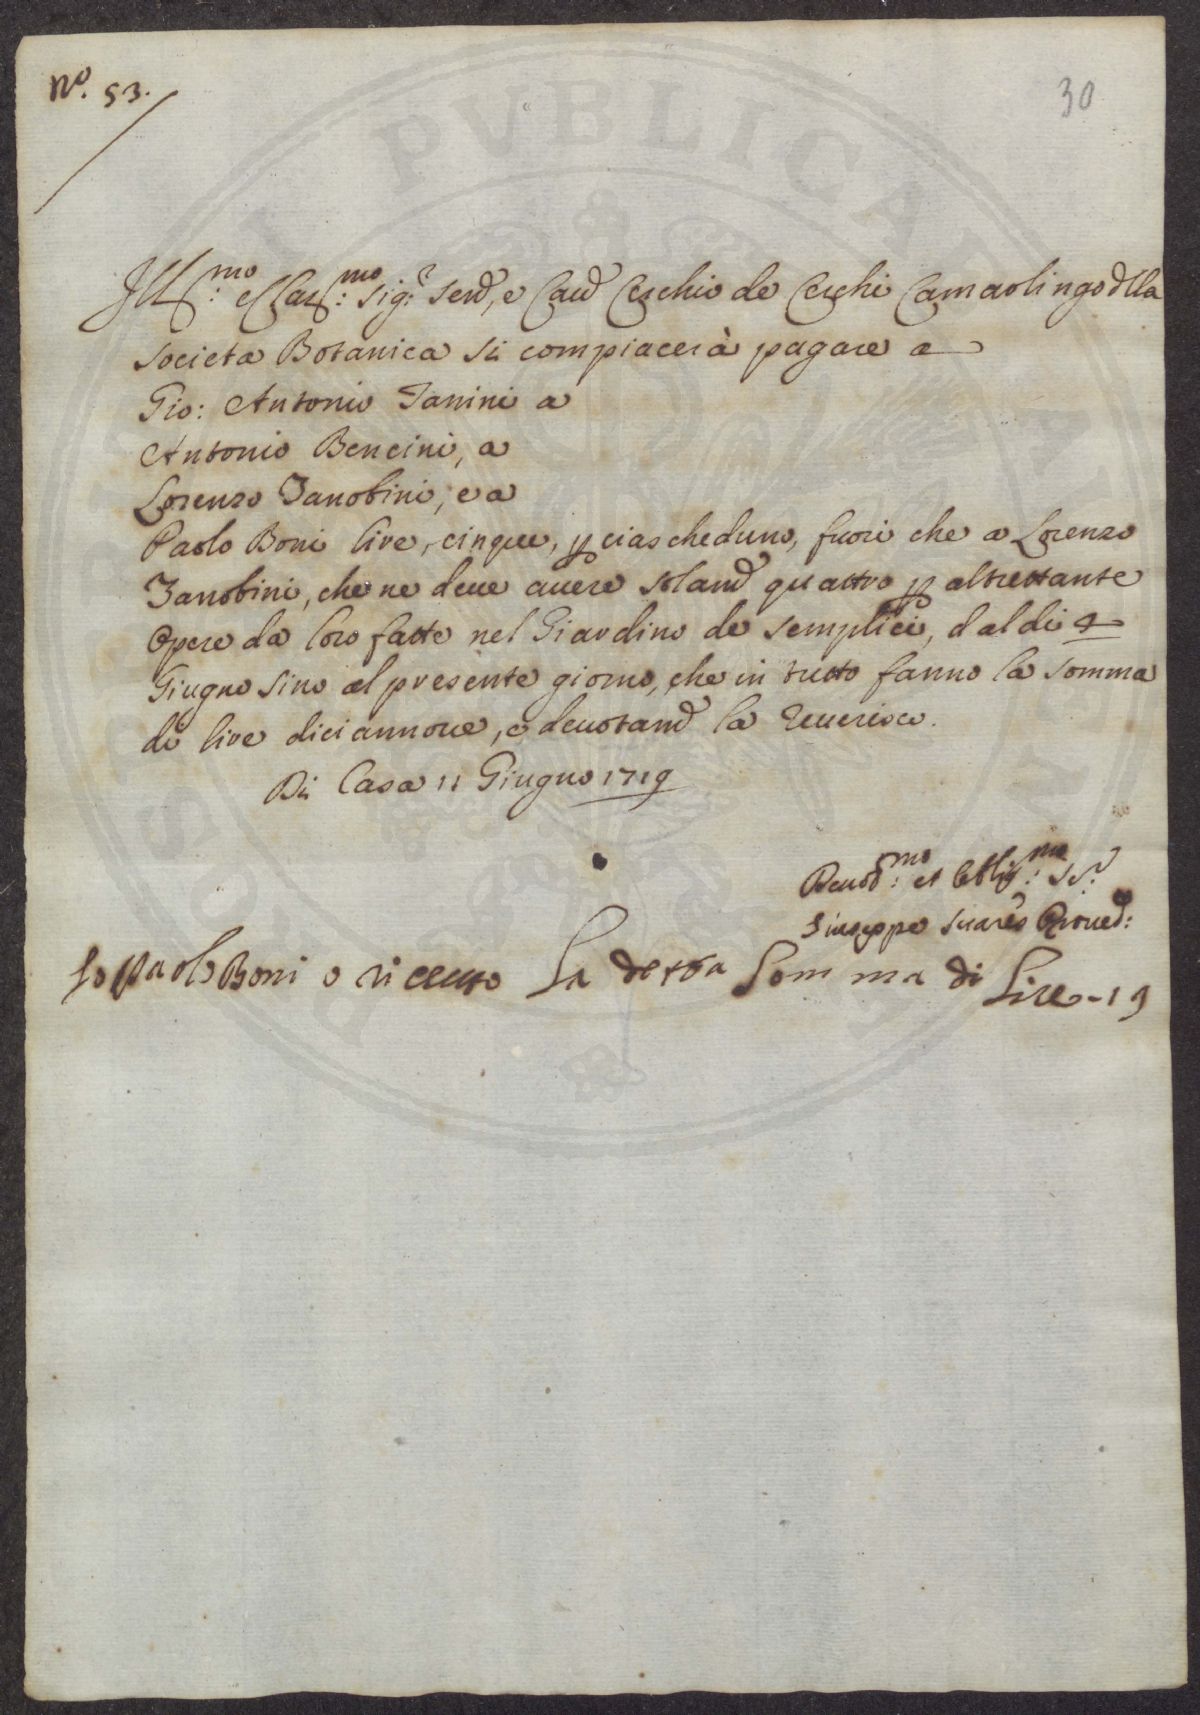 Nº. 53.
30
Ill:mo e Clar:mo Sig:r Send, e Caud Cerchio de Cerchi Camarlingo dlla
Societa Botanica si compiacerà pagare a
Gio: Antonio Zanini a
Antonio Bencini, a
Lorenzo Zanobini, e a
Paolo Boni lire, cinque, p ciascheduno, fuori che a Lorenzo
Zanobini, che ne deve auere soland quattro p altrettante
Opere da loro fatte nel Giardino de Semplici, dal di
Giugno sino al presente giorno, che in tutto fanno la somma
di lire diciannoue, e deuotand la Reuerisco.
Di Casa 11 Giugno 1719
Deuot:mo et Obblig:mo Se:r
Giuseppe Suares Proued:
Io Paolo Boni o riceuto La detta Somma di Lire - 19
PVBLICAE